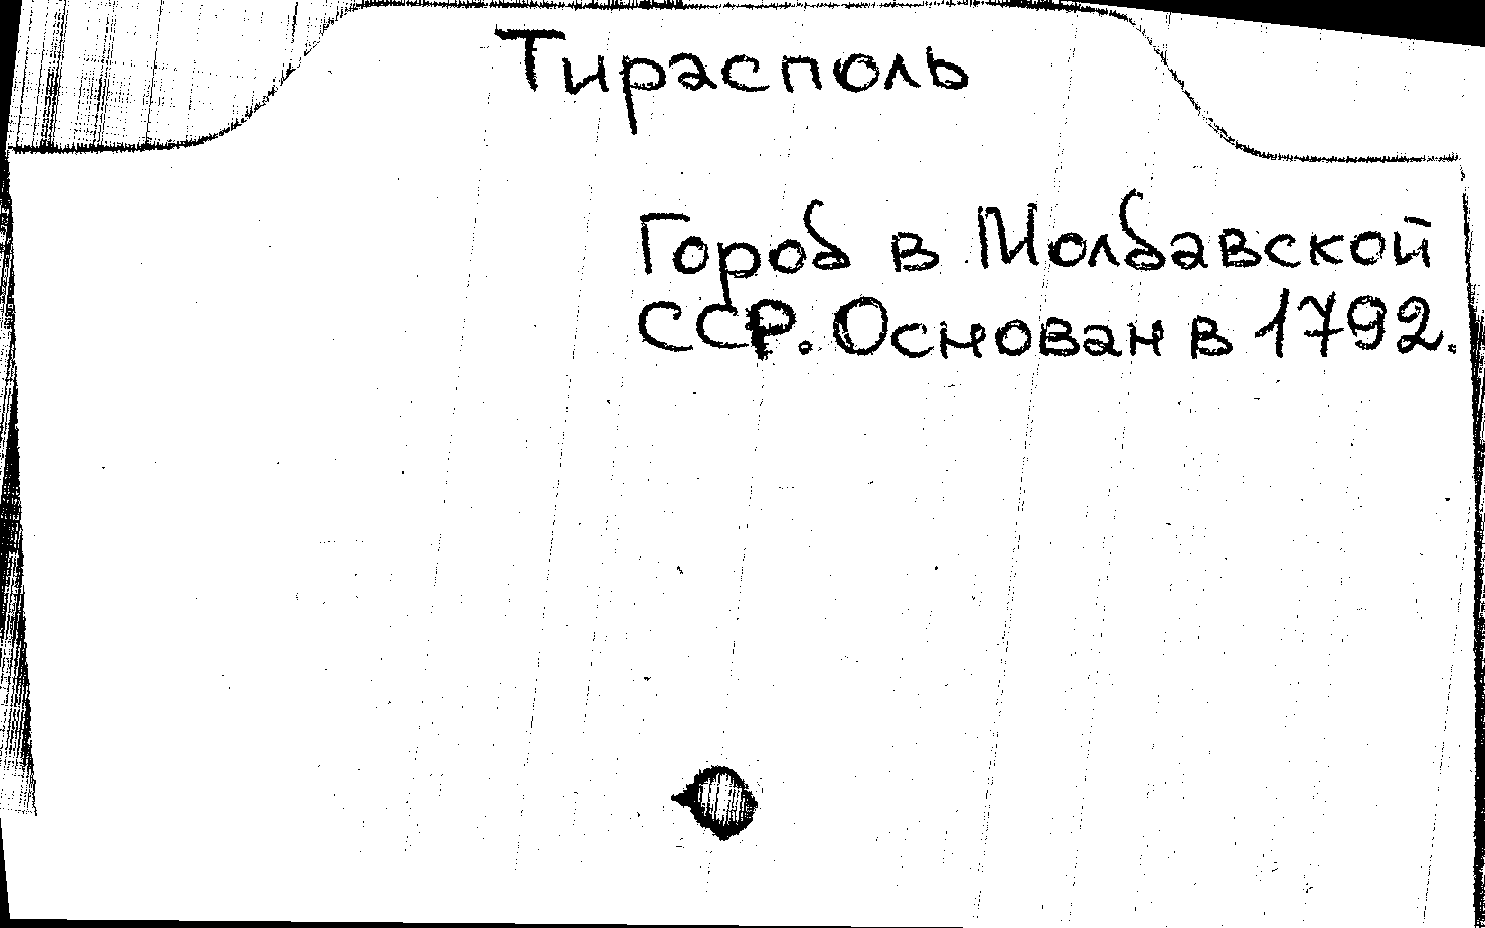 Тирасполь
Город в Молдавской
ССР. Основан в 1792.